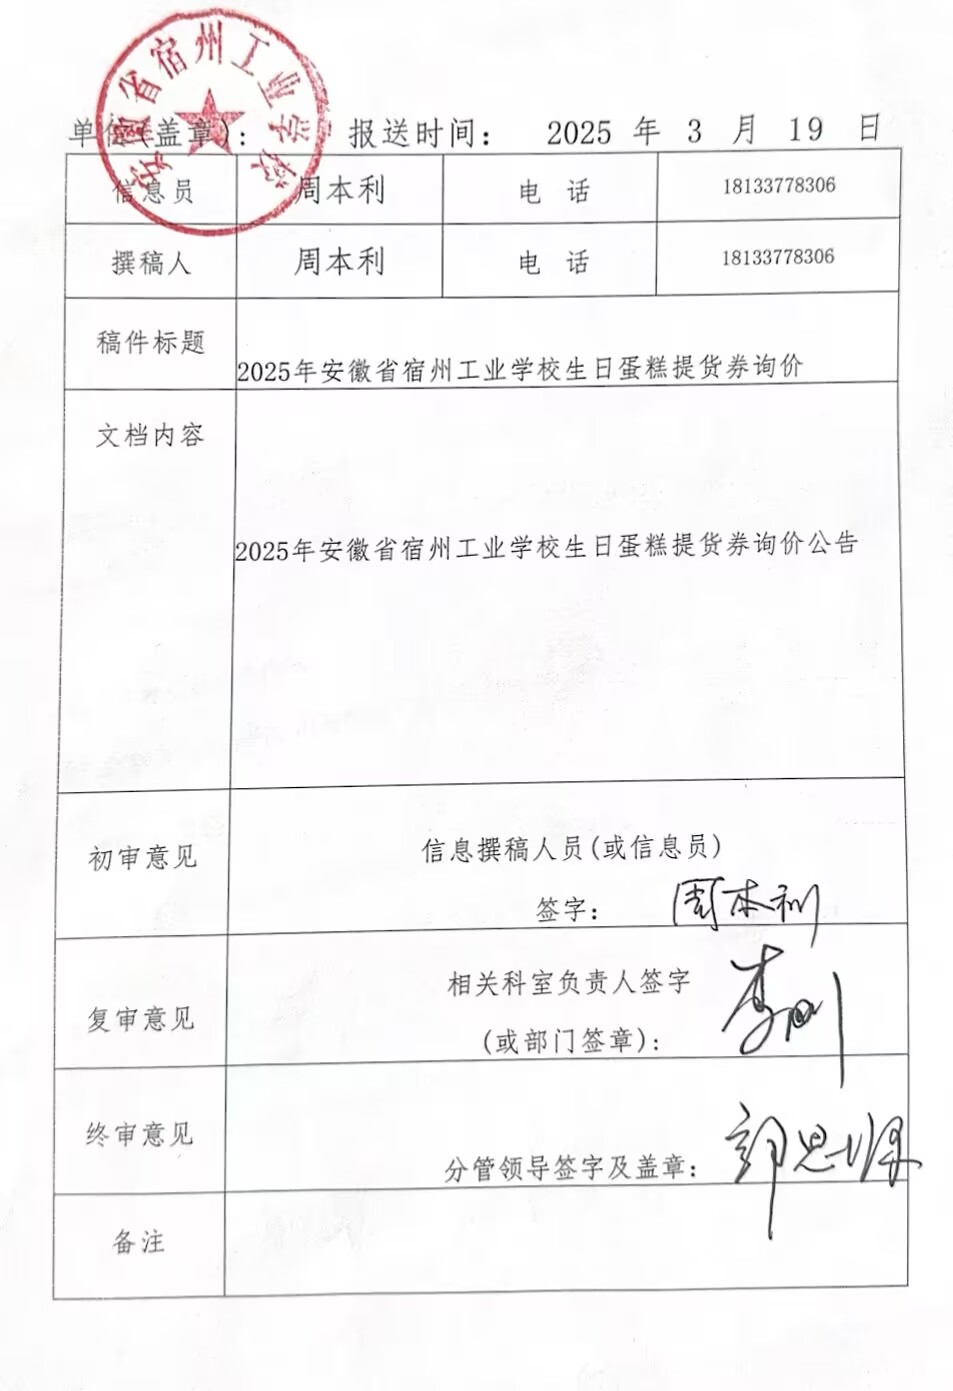 安徽省宿州工业学校
单位(盖章): 报送时间: 2025 年 3 月 19 日
信息员 周本利 电 话 18133778306
撰稿人 周本利 电 话 18133778306
稿件标题 2025年安徽省宿州工业学校生日蛋糕提货券询价
文档内容
2025年安徽省宿州工业学校生日蛋糕提货券询价公告
初审意见 信息撰稿人员(或信息员)
签字: 周本利
复审意见 相关科室负责人签字
(或部门签章):
终审意见 分管领导签字及盖章:
备注